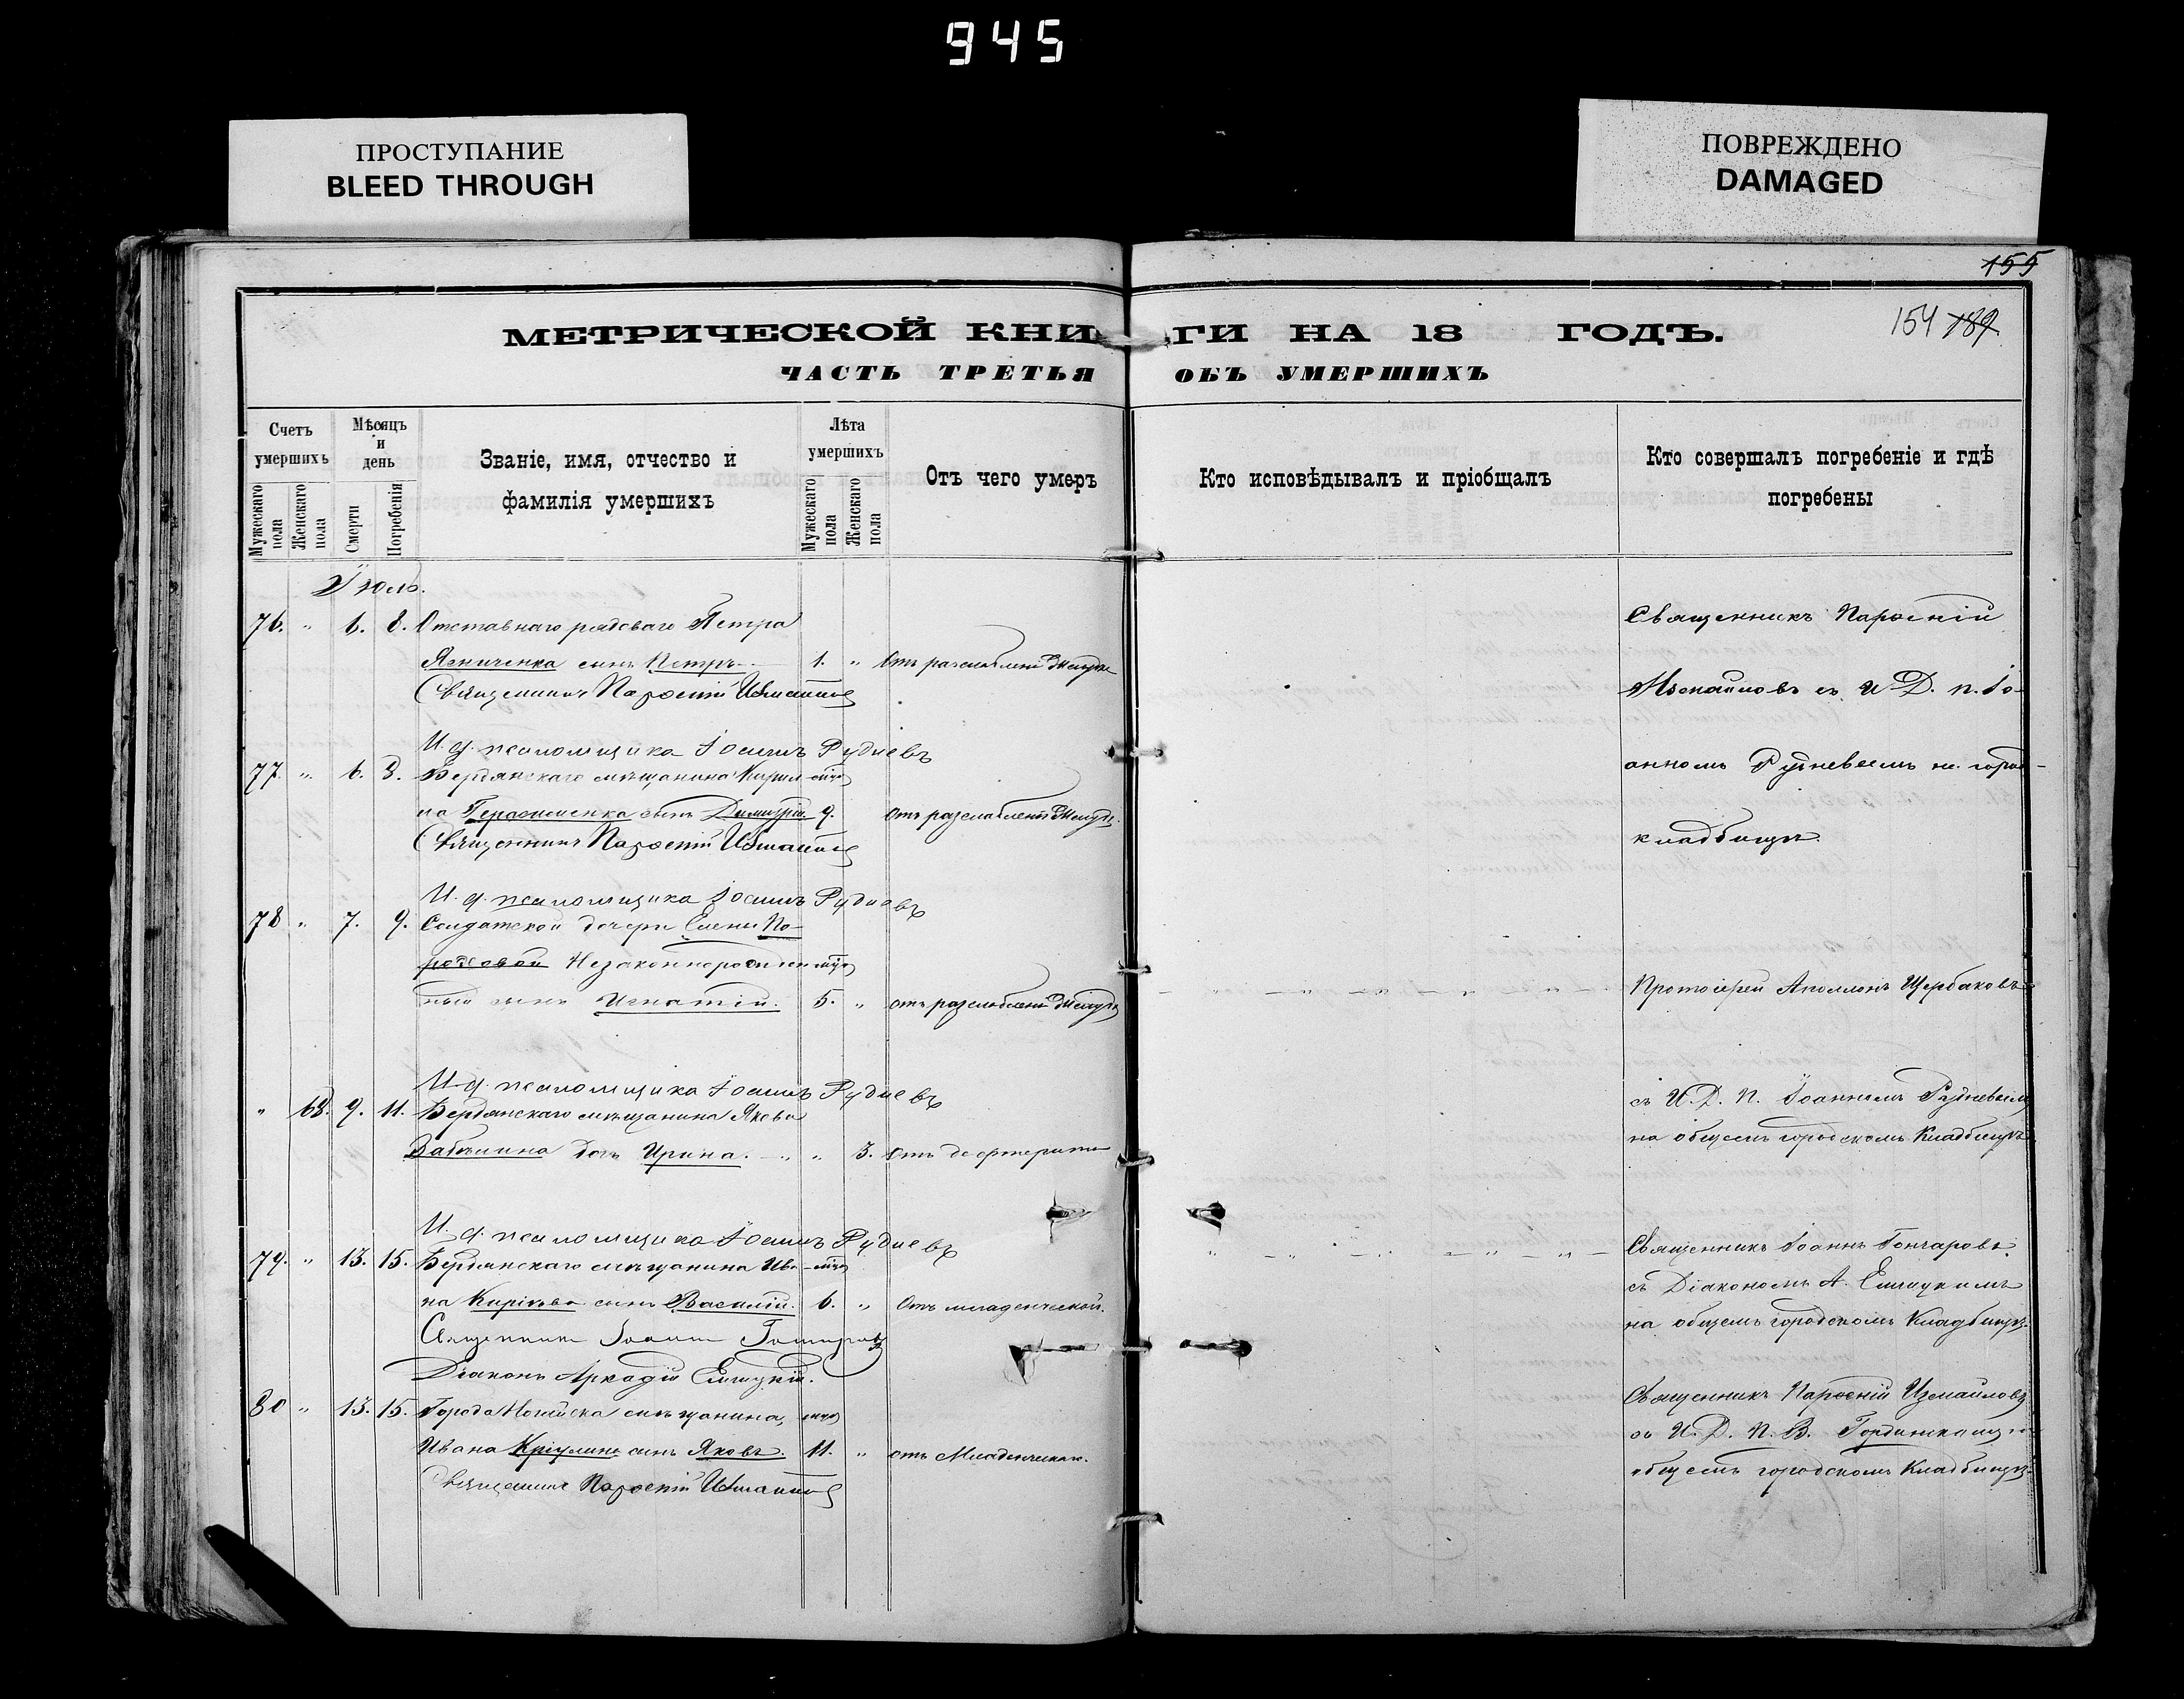 945
ПРОСТУПАНИЕ
BLEED THROUGH
ПОВРЕЖДЕНО
DAMAGED
155
154 189
МЕТРИЧЕСКОЙ КНИГИ НА 18 ГОДЪ.
ЧАСТЬ ТРЕТЬЯ ОБЪ УМЕРШИХЪ
Счетъ умершихъ
Мужескаго пола
Женскаго пола
Мѣсяцъ и день
Смерти
Погребенія
Званіе, имя, отчество и фамилія умершихъ
Лѣта умершихъ
Мужескаго пола
Женскаго пола
Отъ чего умеръ
Кто исповѣдывалъ и пріобщалъ
Кто совершалъ погребеніе и гдѣ погребены
Іюль.
76. " 6. 8. Отставнаго рядоваго Петра
сынъ Петръ 1. " Отъ
Священникъ Парѳеній Измаиловъ
Священникъ Парѳеній
Измаиловъ съ И. Д. п. Іо-
анномъ Рудневымъ на город-
кладбищѣ.
И. д. псаломщика Іоаннъ Рудневъ
77. " 6. 8. Бердянскаго мѣщанина Кирил-
ла Герасименка сынъ Димитрій 9. Отъ
Священникъ Парѳеній Измаиловъ
И. д. псаломщика Іоаннъ Рудневъ
78 " 7. 9. Солдатской дочери Елены По-
Незаконнорожден-
ный сынъ Игнатій. 5. " отъ
Протоіерей Аполлонъ Щербаковъ
съ И. Д. П. Іоанномъ Рудневымъ
на общемъ городскомъ Кладбищѣ
И. д. псаломщика Іоаннъ Рудневъ
" 68. 9. 11. Бердянскаго мѣщанина Якова
дочь Ирина. " " 3. Отъ дифтерита
И. д. псаломщика Іоаннъ Рудневъ
79. " 13. 15. Бердянскаго мѣщанина Ива-
на сынъ Василій. 6. " Отъ младенческой.
Священникъ Іоаннъ Гончаровъ
Діаконъ Аркадій
Священникъ Іоаннъ Гончаровъ
съ Діакономъ А.
на общемъ городскомъ Кладбищѣ.
80 " 13. 15. Города Ногайска мѣщанина
Ивана сынъ Яковъ. 11. " отъ Младенческой.
Священникъ Парѳеній Измаиловъ
Священникъ Парѳеній Измаиловъ
со И. Д. П. В.
общемъ городскомъ Кладбищѣ